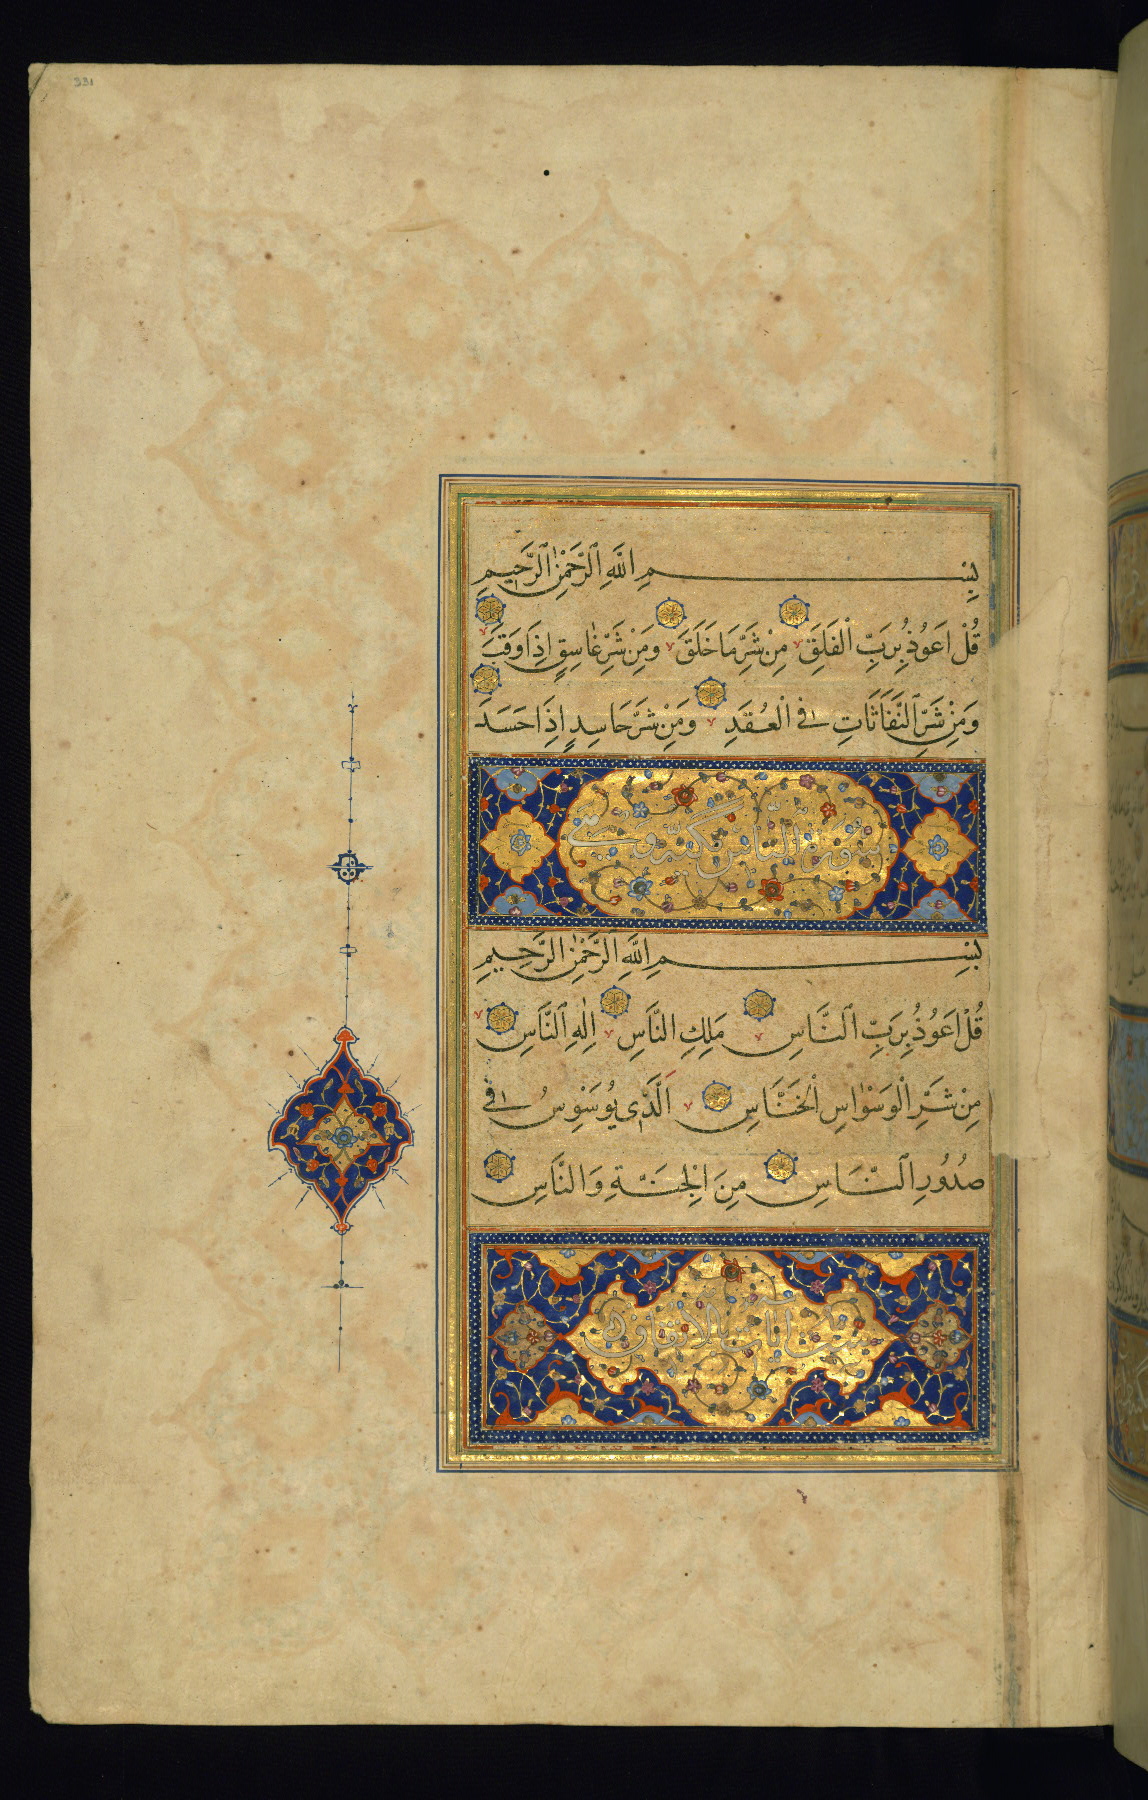 331
بِسْمِ اللَّهِ الرَّحْمٰنِ الرَّحِيمِ
قُلْ اَعُوذُ بِرَبِّ الْفَلَقِ مِنْ شَرِّ مَا خَلَقَ وَمِنْ شَرِّ غَاسِقٍ اِذَا وَقَبَ
وَمِنْ شَرِّ النَّفَّاثَاتِ فِي الْعُقَدِ وَمِنْ شَرِّ حَاسِدٍ اِذَا حَسَدَ
سورة الناس
بِسْمِ اللَّهِ الرَّحْمٰنِ الرَّحِيمِ
قُلْ اَعُوذُ بِرَبِّ النَّاسِ مَلِكِ النَّاسِ اِلٰهِ النَّاسِ
مِنْ شَرِّ الْوَسْوَاسِ الْخَنَّاسِ اَلَّذِي يُوَسْوِسُ فِي
صُدُورِ النَّاسِ مِنَ الْجِنَّةِ وَالنَّاسِ
ست آيات بالاتفاق